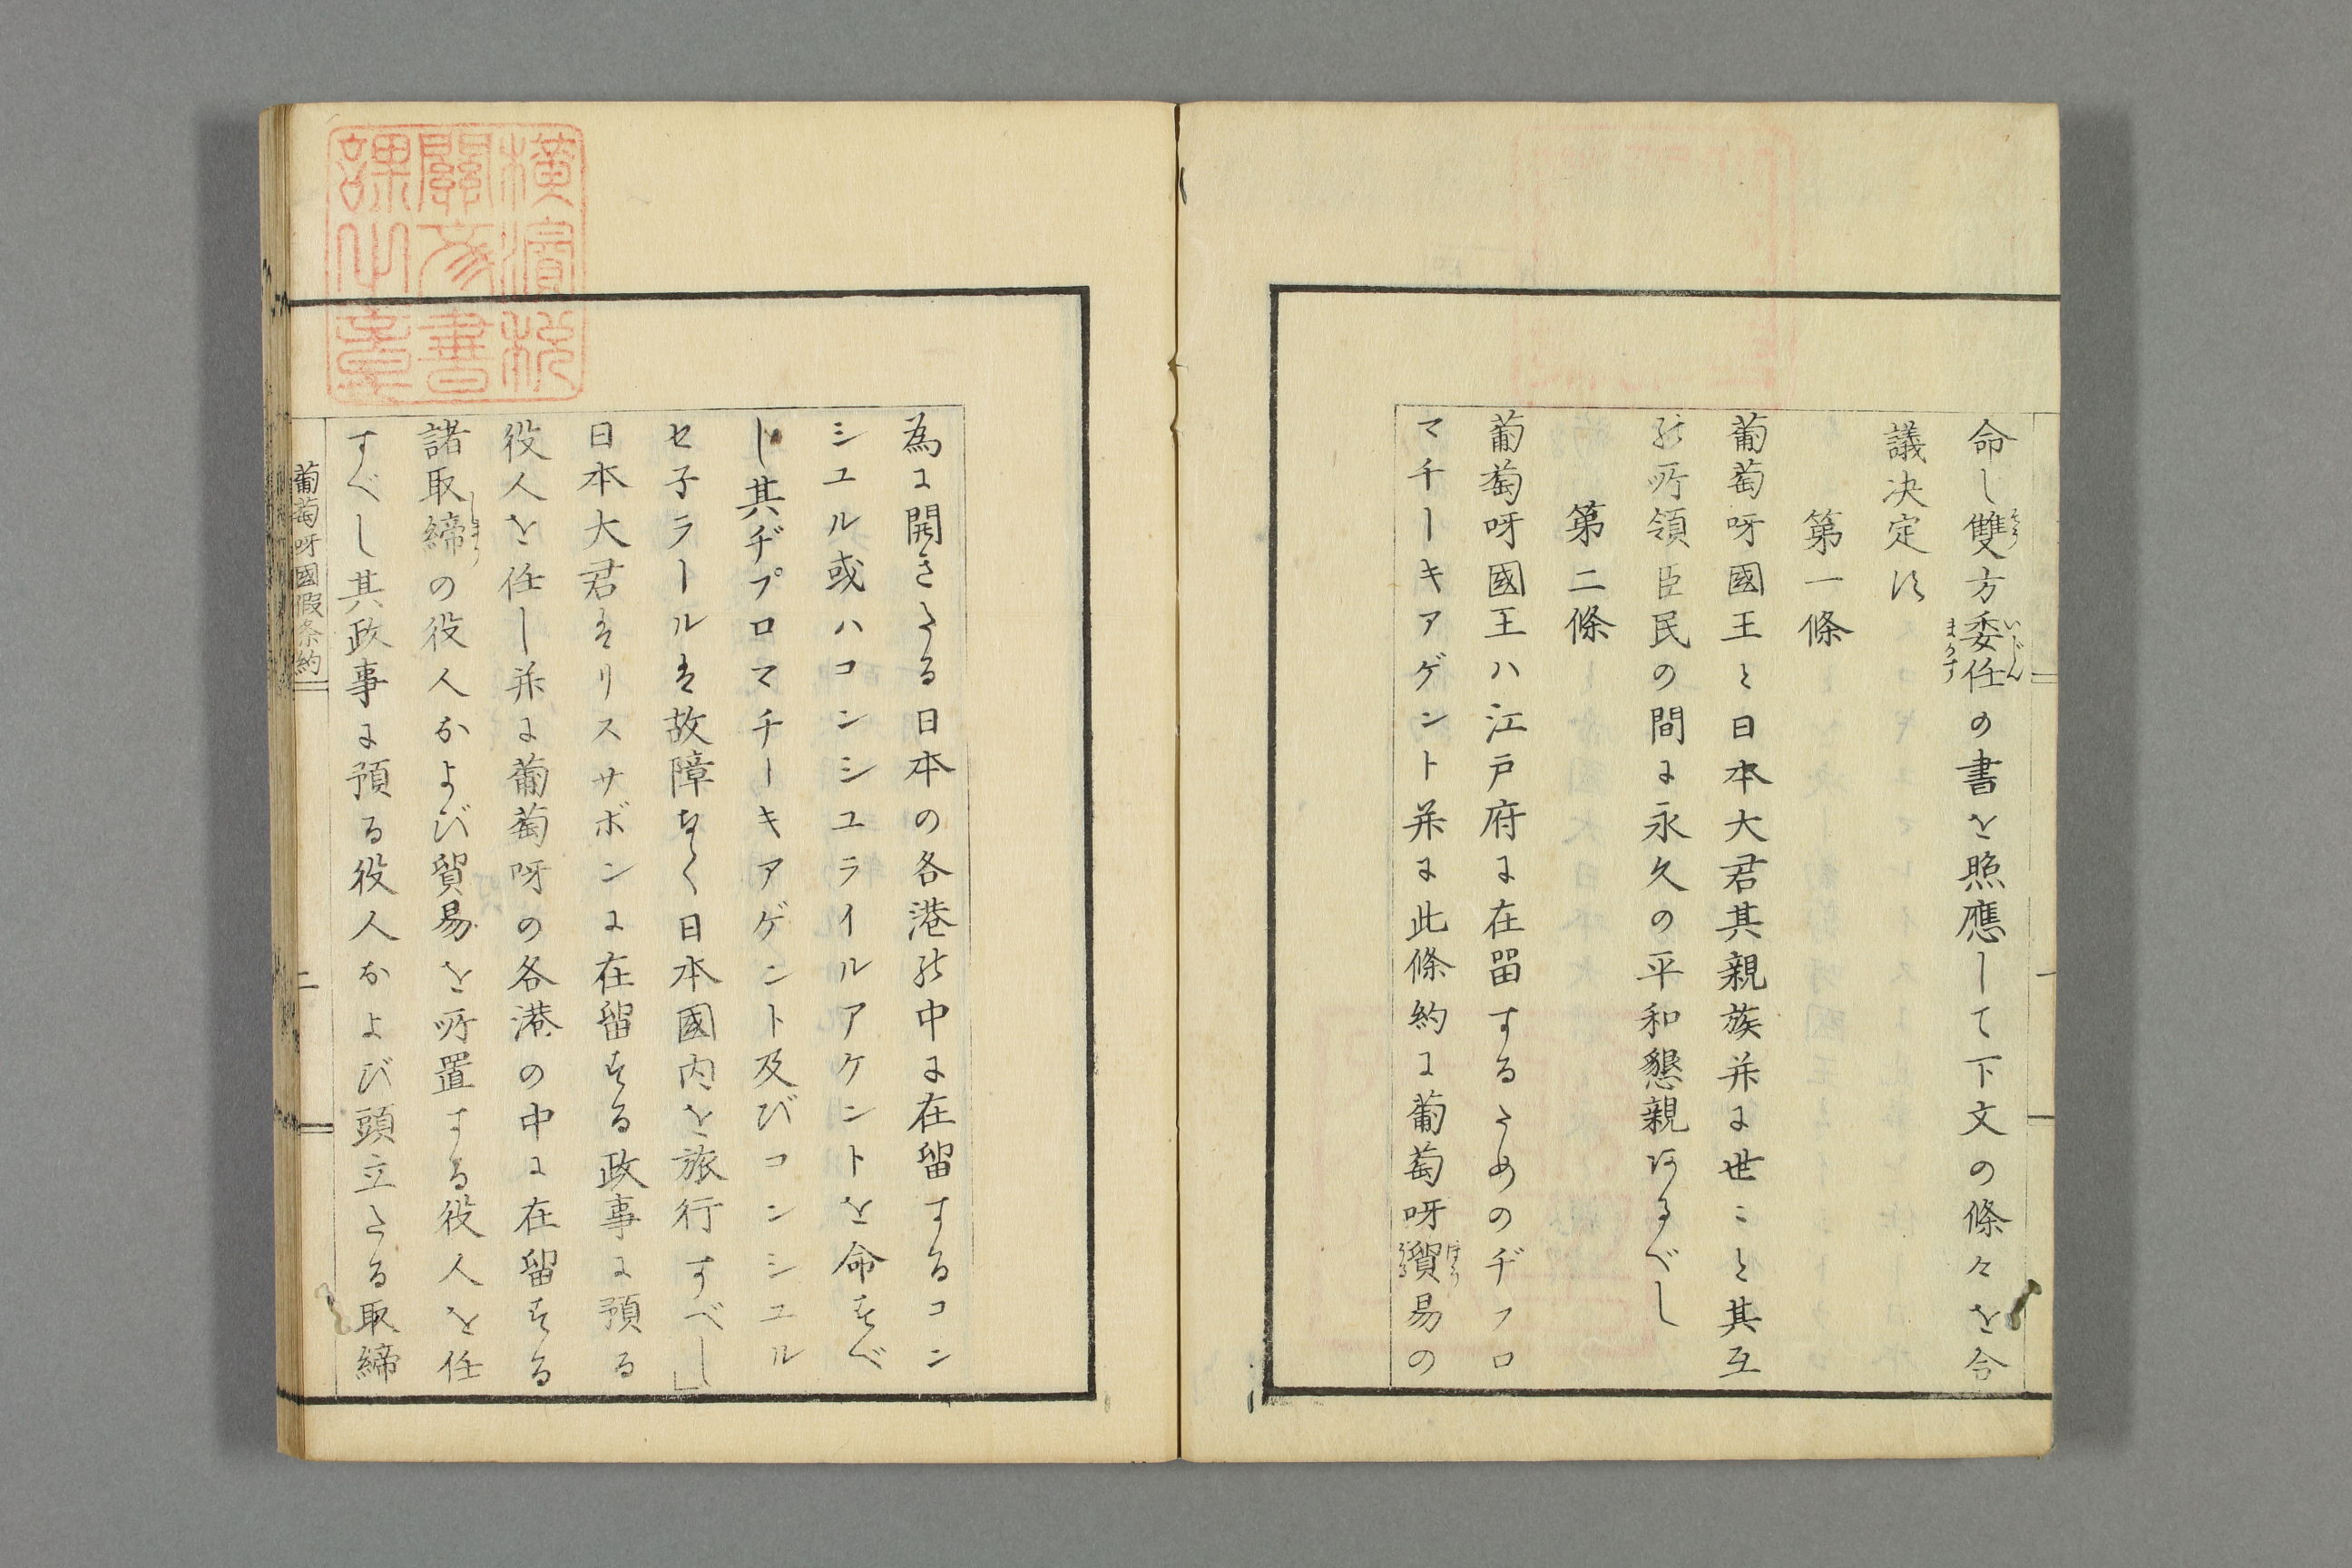 命し雙方委任の書を照應して下文の條々を合
そう
いじん
まかす
議决定す
第一條
葡萄呀國王と日本大君其親族并に世〻と其互
の所領臣民の間に永久の平和懇親あるべし
第二條
葡萄呀國王ハ江戸府に在留するためのヂフロ
マチーキアゲント并に此條約に葡萄呀貿易の
ぼう
為に開きたる日本の各港の中に在留するコン
シユル或ハコンシユライルアケントを命すべ
し其ヂプロマチーキアゲント及びコンシユル
セ子ラールは故障なく日本國内を旅行すべし」
日本大君はリスサボンに在留する政事に預る
役人を任し并に葡萄呀の各港の中に在留する
諸取締の役人および貿易を所置する役人を任
しまり
すべし其政事に預る役人および頭立たる取締
葡萄呀國假条約
二
橫濱税
關文書
課之章